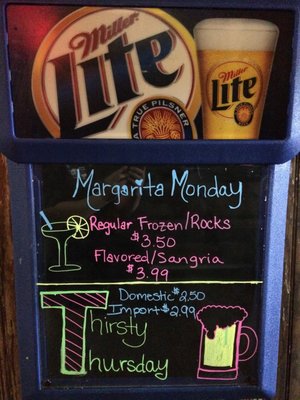 Miller
Lite
A TRUE PILSNER
Miller
Lite
Margarita Monday
Regular Frozen/Rocks
$3.50
Flavored/Sangria
$3.99
Domestic $2.50
Import $2.99
Thirsty
Thursday